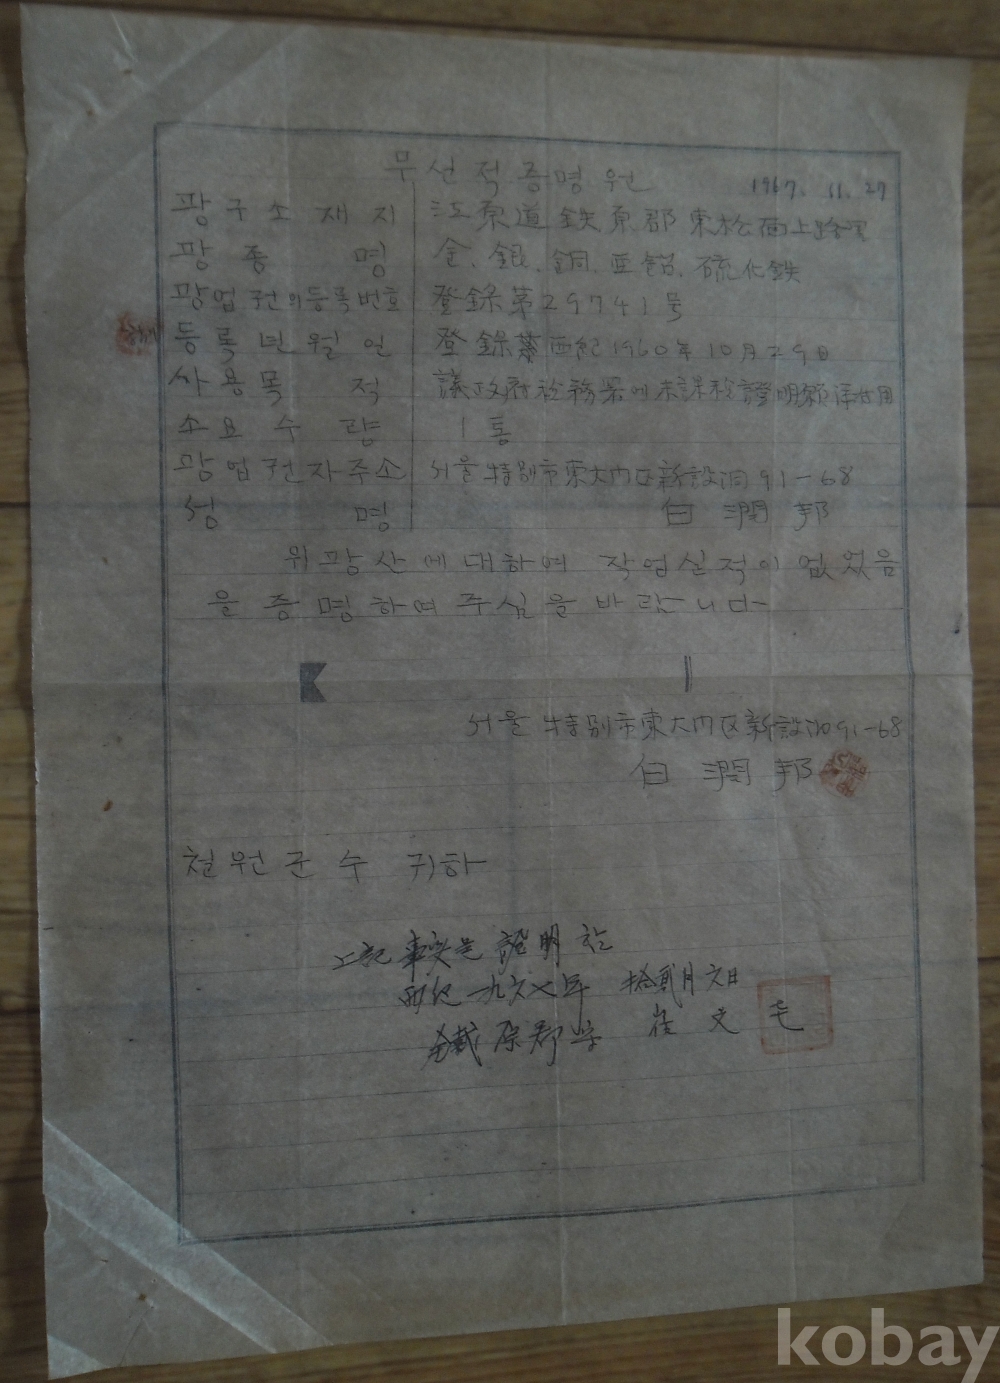 무선적증명원
1967. 11. 27
광구소재지 江原道 鉄原郡 東松面上路里
광종명 金、銀、銅、亜鉛、硫化鉄
광업권의등록번호 登錄第29741号
등록년월일 登錄 西紀1960年10月29日
사용목적 議政府税務署에未課税證明願
소요수량 1통
광업권자주소 서울特別市東大门区新設洞91-68
성명 白潤邦
위광산에대하여 작업실적이없었음
을증명하여주심을바랍니다
서울 特別市東大门区新設洞91-68
白潤邦
철원군수 귀하
上記 事実을 證明함
西紀 一九六七年 拾貳月 六日
鐵原郡守 崔文
kobay